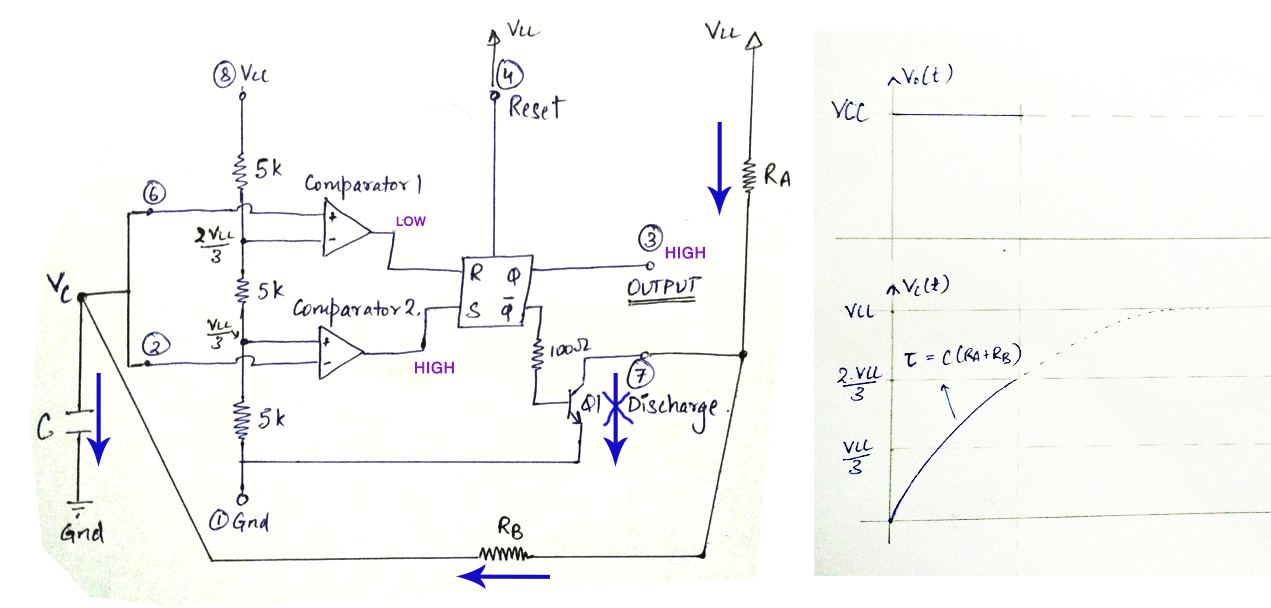 VCC
VCC
⑧ VCC
④
Reset
5k
RA
Comparator 1
⑥
+
-
LOW
2VCC
3
③
HIGH
R Q
OUTPUT
VC
5k
Comparator 2.
S Q̄
VCC
3
+
-
②
HIGH
100Ω
⑦
Q1
Discharge.
C
5k
Gnd
① Gnd
RB
Vo(t)
VCC
VC(t)
VCC
τ = C(RA+RB)
2.VCC
3
VCC
3